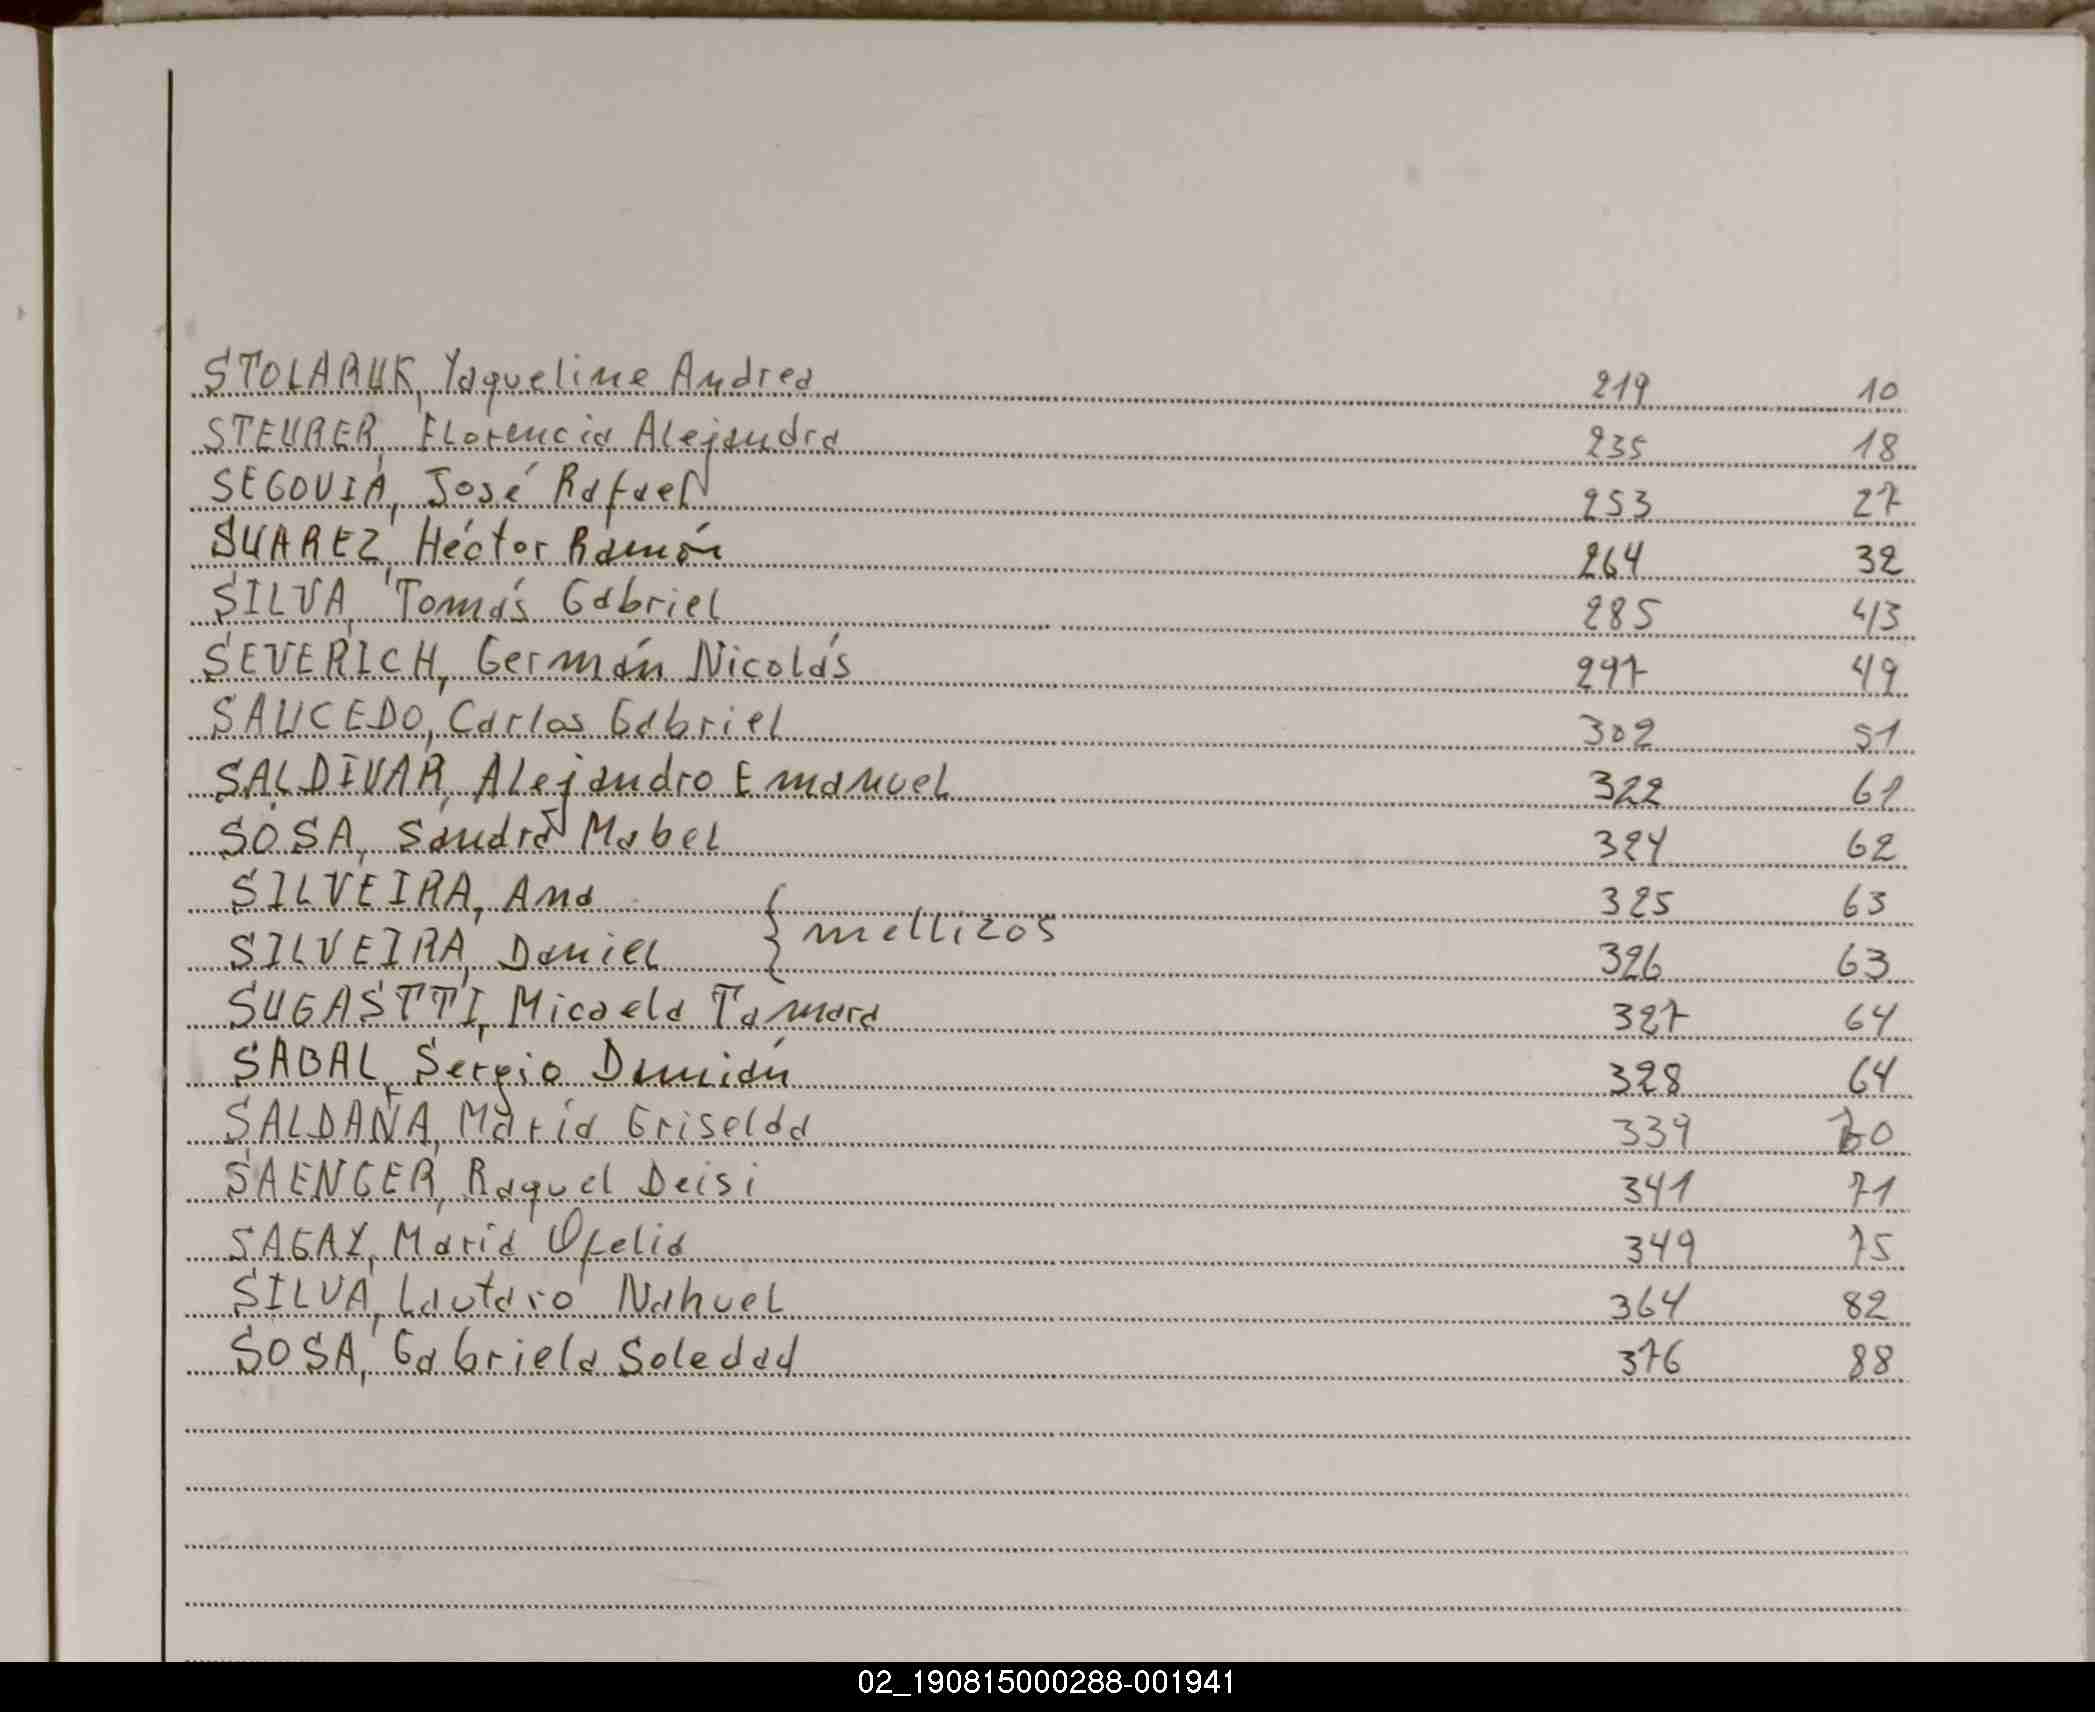 STOLARUK, Yaqueline Andrea 219 10
STEURER, Florencia Alejandra 235 18
SEGOVIA, José Rafael 253 27
SUAREZ, Héctor Ramón 264 32
SILVA, Tomás Gabriel 285 43
SEVERICH, Germán Nicolás 297 49
SAUCEDO, Carlos Gabriel 302 51
SALDIVAR, Alejandro Emanuel 322 61
SOSA, Sandra Mabel 324 62
SILVEIRA, Ana 325 63
{ mellizos
SILVEIRA, Daniel 326 63
SUGASTTI, Micaela Tamara 327 64
SABAL, Sergio Damián 328 64
SALDAÑA, María Griselda 339 70
SAENGER, Raquel Deisi 341 71
SAGAY, Maria Ofelia 349 75
SILVA, Lautaro Nahuel 364 82
SOSA, Gabriela Soledad 376 88
02_190815000288-001941